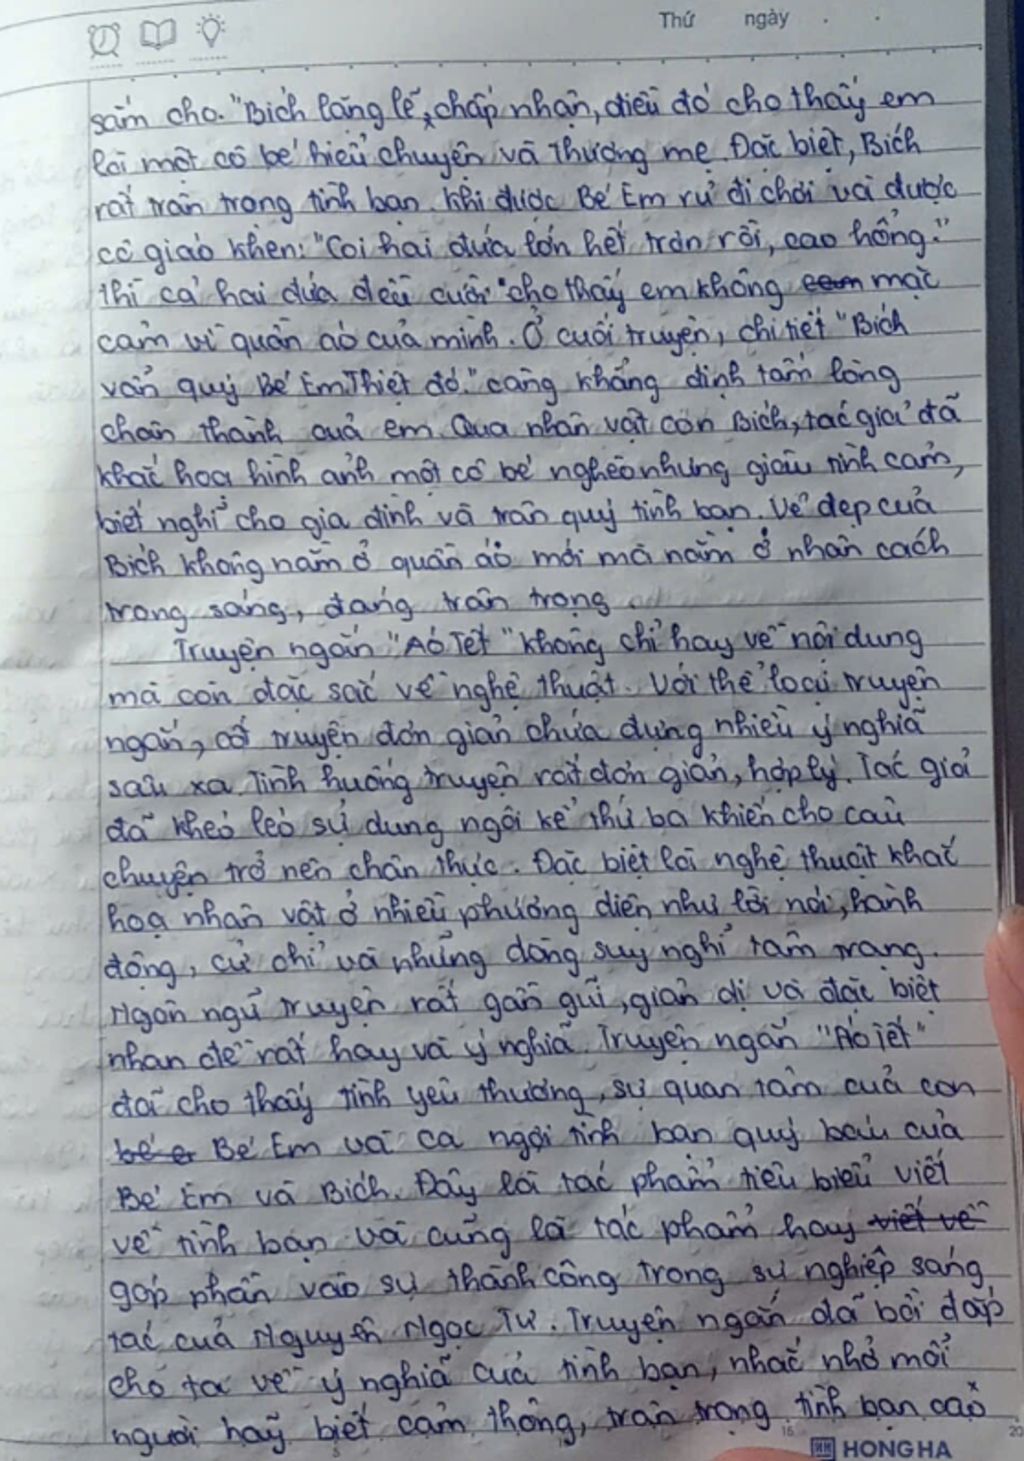 Thứ ngày
sắm cho. "Bích lặng lẽ, chấp nhận, điều đó cho thấy em
là một cô bé hiểu chuyện và thương mẹ. Đặc biệt, Bích
rất trân trọng tình bạn. Khi được Bé Em rủ đi chơi và được
cô giáo khen: "Coi hai đứa lớn hết trơn rồi, cao hổng."
thì cả hai đứa đều cười "cho thấy em không mặc
cảm vì quần áo của mình. Ở cuối truyện, chi tiết "Bích
vẫn quý Bé Em. Thiệt đó." càng khẳng định tấm lòng
chân thành của em. Qua nhân vật con Bích, tác giả đã
khắc họa hình ảnh một cô bé nghèo nhưng giàu tình cảm,
biết nghĩ cho gia đình và trân quý tình bạn. Vẻ đẹp của
Bích không nằm ở quần áo mới mà nằm ở nhân cách
trong sáng, đáng trân trọng.
Truyện ngắn "Áo Tết" không chỉ hay về nội dung
mà còn đặc sắc về nghệ thuật. Với thể loại truyện
ngắn, cốt truyện đơn giản chứa đựng nhiều ý nghĩa
sâu xa. Tình huống truyện rất đơn giản, hợp lý. Tác giả
đã khéo léo sử dụng ngôi kể thứ ba khiến cho câu
chuyện trở nên chân thực. Đặc biệt là nghệ thuật khắc
họa nhân vật ở nhiều phương diện như lời nói, hành
động, cử chỉ và những dòng suy nghĩ tâm trạng.
Ngôn ngữ truyện rất gần gũi, giản dị và đặc biệt
nhan đề rất hay và ý nghĩa. Truyện ngắn "Áo Tết"
đã cho thấy tình yêu thương, sự quan tâm của con
bé e Bé Em và ca ngợi tình bạn quý báu của
Bé Em và Bích. Đây là tác phẩm tiêu biểu viết
về tình bạn và cũng là tác phẩm hay viết về
góp phần vào sự thành công trong sự nghiệp sáng
tác của Nguyễn Ngọc Tư. Truyện ngắn đã bồi đắp
cho ta về ý nghĩa của tình bạn, nhắc nhở mỗi
người hãy biết cảm thông, trân trọng tình bạn cao
15 20
HONG HA